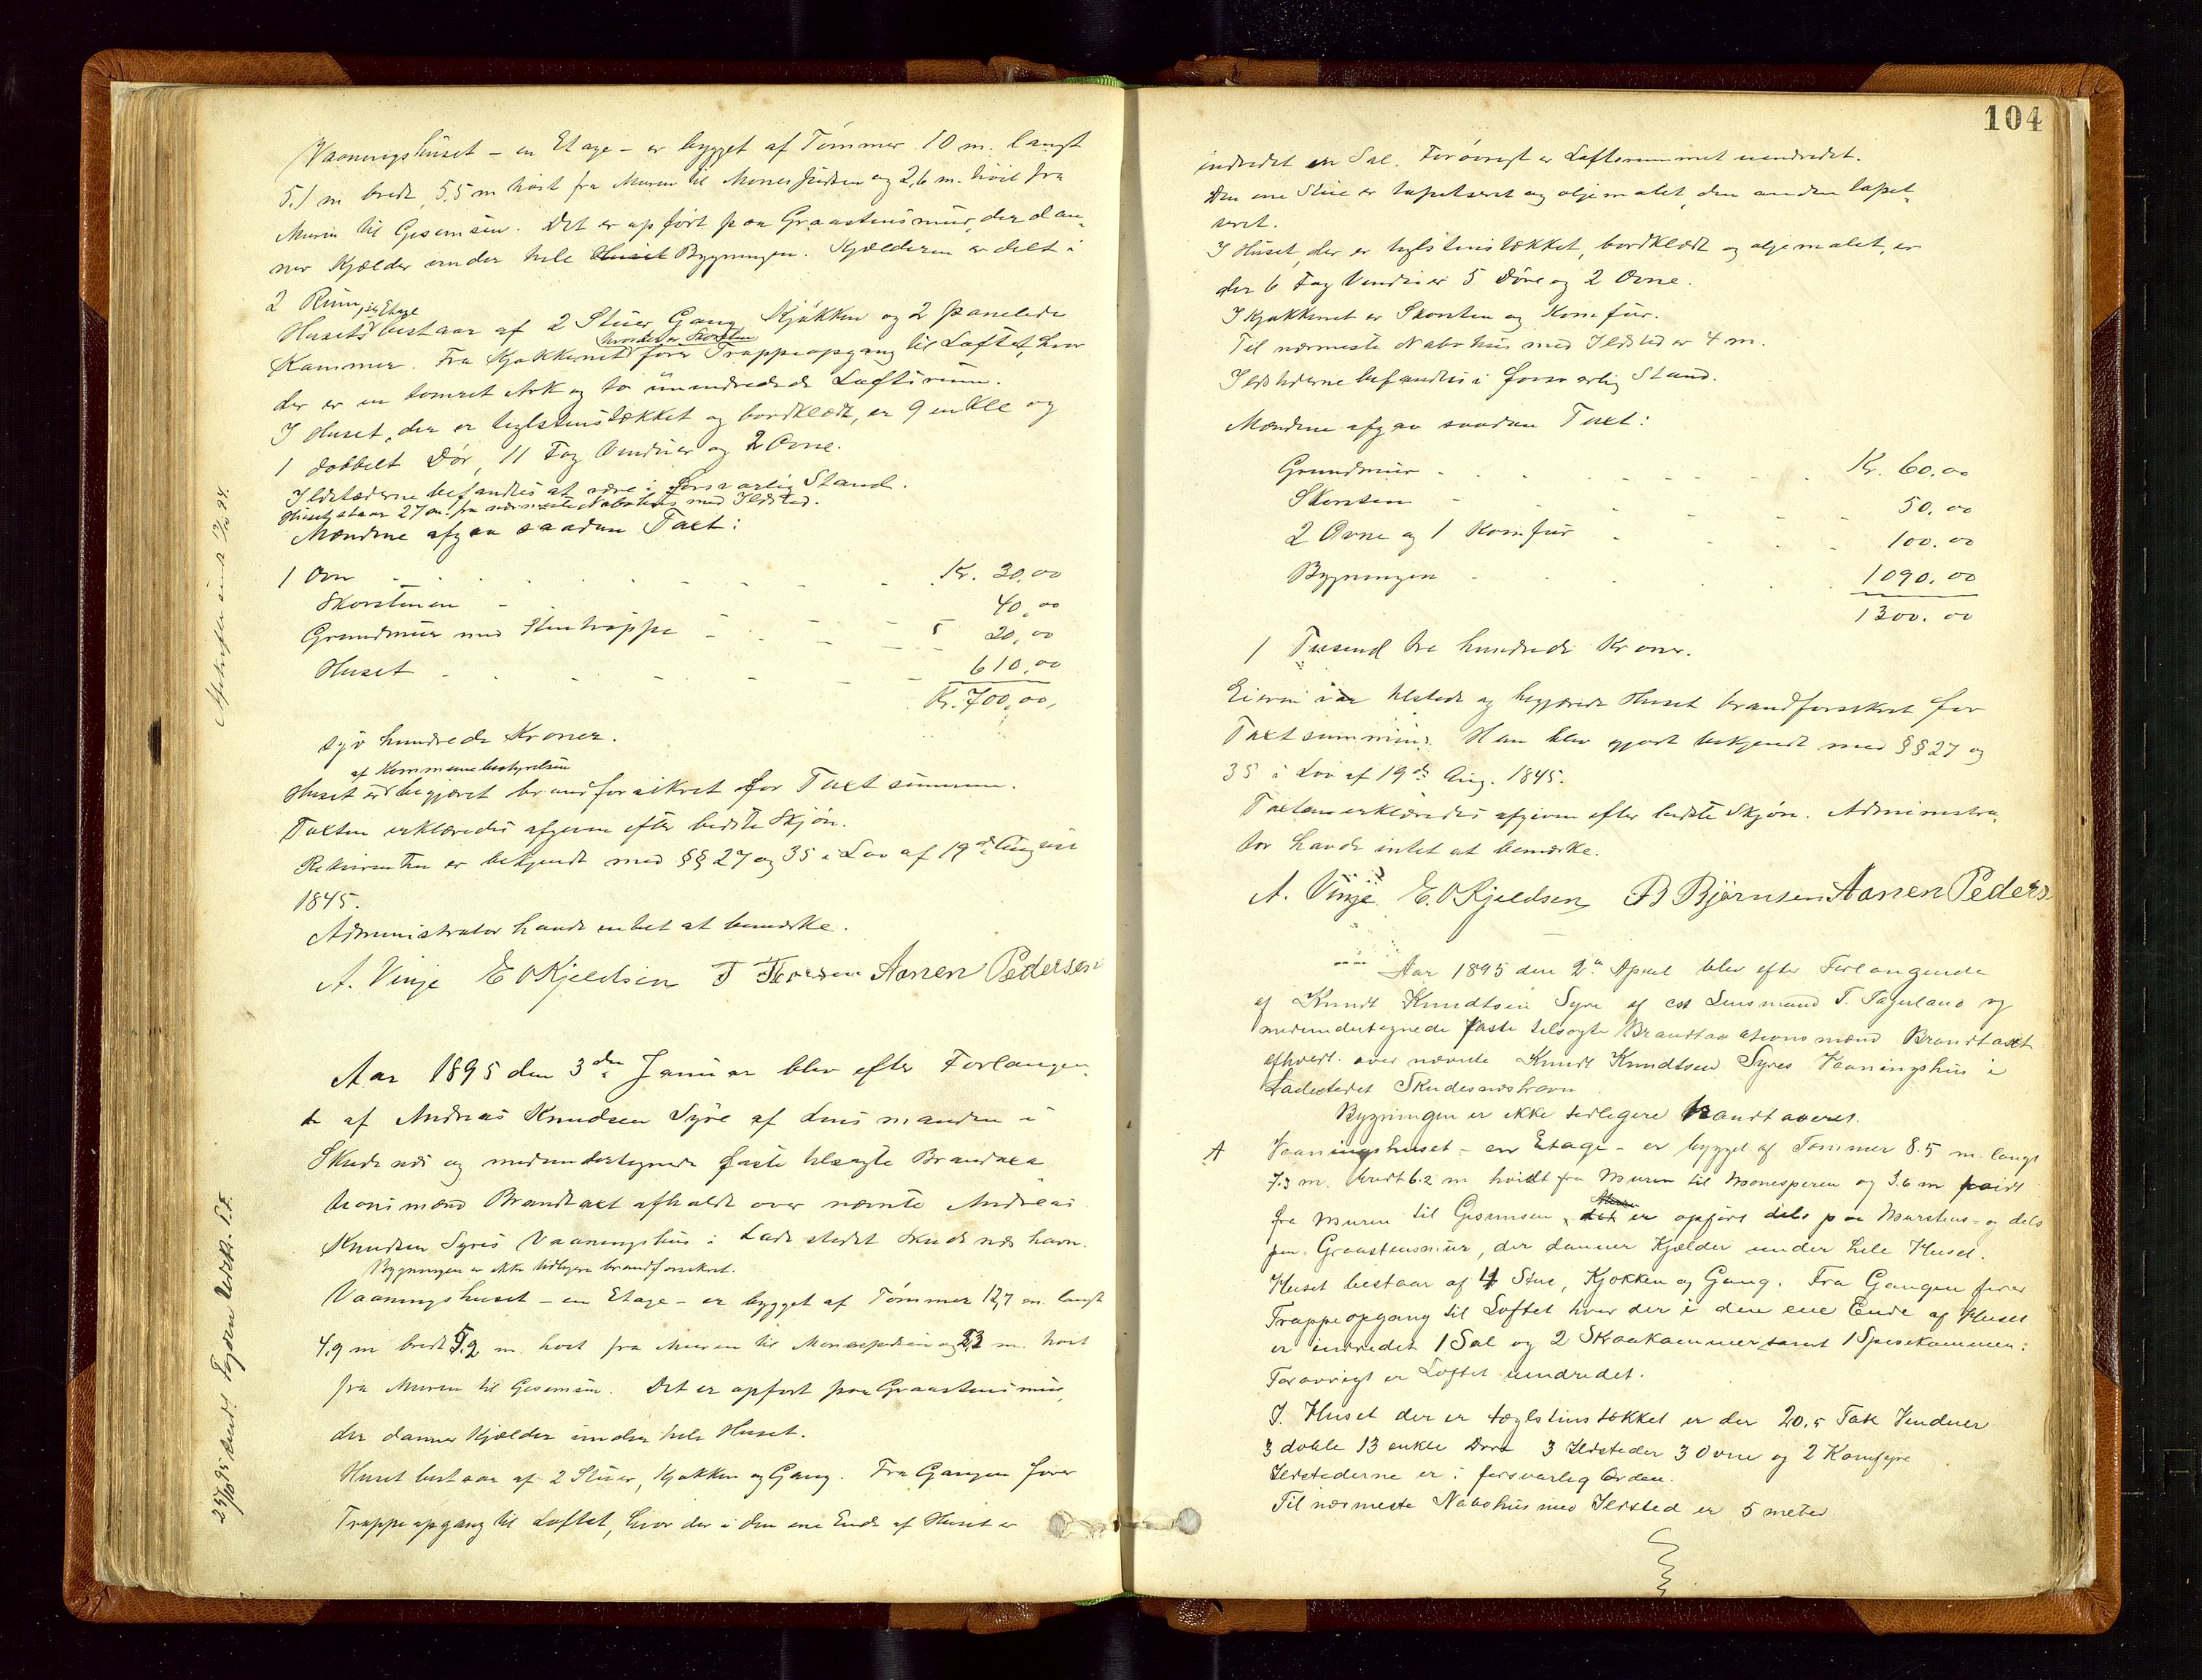 Vaaningshuset - en Etage - er bygget af Tømmer 10 m. langt
5.1 m bredt, 5,5 m høit fra Muren til Mønespidsen og 2,6 m. høit fra
Muren til Gesemsen. Det er opført paa Graastensmur, der dan-
ner Kjælder under hele Huset Bygningen. Kjælderen er delt i
2 Rum,
Husets 1ste Etage bestaar af 2 Stuer Gang Kjøkken og 2 panelede
Kammer. Fra Kjøkkenet hvori det er Skorsten fører Trappeopgang til Loftet, hvor
der er en tømret Ark og to uindredede Loftsrum.
I Huset, der er teglstenstækket og bordklædt, er 9 enkle og
1 dobbelt Dør, 11 Fag Vinduer og 2 Ovne.
Ildstederne befandtes at være i forsvarlig Stand.
Huset staar 27 m. fra nærmeste Nabohus med Ildsted.
Mændene afgav saadan Taxt:
1 Ovn Kr. 30,00
Skorstenen 40,00
Grundmur med Stentrappe 20,00
Huset 610,00
Kr. 700,00,
syv hundrede Kroner.
Huset er af Kommunebestyrelsen begjæret brandforsikret for Taxtsummen.
Taxten erklæredes afgiven efter bedste Skjøn.
Rekvirenten er bekjendt med §§ 27 og 35 i Lov af 19de August
1845.
Administrator havde intet at bemærke.
A. Vinje E O Kjeldsen T Aanen Pedersen
Aar 1895 den 3die Januar blev efter Forlangen-
de af Andreas Knudsen Syre af Lensmanden i
Skudenes og medundertegnede faste tilsagte Brandtaxa
tionsmænd Brandtaxt afholdt over nævnte Andreas
Knudsen Syres Vaaningshus i Ladestedet Skudeneshavn.
Bygningen er ikke tidligere brandforsikret.
Vaaningshuset - en Etage - er bygget af Tømmer 12,7 m. langt
4,9 m bredt 5,2 m. høit fra Muren til Mønespidsen og 2,3 m. høit
fra Muren til Gesemsen. Det er opført paa Graastensmur,
der danner Kjælder under hele Huset.
Huset bestaar af 2 Stuer, Kjøkken og Gang. Fra Gangen fører
Trappeopgang til Loftet, hvor der i den ene Ende af Huset er
104
indredet en Sal. Forøvrigt er Loftsrummet uindredet.
Den ene Stue er tapetseret og oljemalet, den anden tapet-
seret.
I Huset, der er teglstenstækket, bordklædt og oljemalet, er
der 6 Fag Vinduer 5 Døre og 2 Ovne.
I Kjøkkenet er Skorsten og Komfur.
Til nærmeste Nabohus med Ildsted er 4 m.
Ildstederne befandtes i forsvarlig Stand.
Mændene afgav saadan Taxt:
Grundmur Kr. 60,00
Skorsten 50,00
2 Ovne og 1 Komfur 100.00
Bygningen 1090.00
1300.00
1 Tusend tre hundrede Kroner.
Eieren var tilstede og begjærede Huset brandforsikret for
Taxtsummen. Han blev gjort bekjendt med §§ 27 og
35 i Lov af 19de Aug. 1845.
Taxten erklæredes afgiven efter bedste Skjøn. Administra-
tor havde intet at bemærke.
A. Vinje E. O Kjeldsen B Bjørnsen Aanen Peders
Aar 1895 den 2n April blev efter Forlangende
af Knudt Knudtsen Syre af cst Lensmand T. og
medundertegnede faste tilsagte Brandtaxationsmænd Brandtaxt
afholdt over nævnte Knudt Knudtsen Syres Vaaningshus i
Ladestedet Skudesneshavn
Bygningen er ikke tidligere brandtaxeret.
A Vaaningshuset - en Etage - er bygget af Tømmer 8.5 m. langt
7.3 m. bredt 6.2 m høidt fra Muren til Mønesperen og 3.6 m høidt
fra Muren til Gesimsen, det er opført dels paa Murstens- og dels
paa Graastensmur, der danner Kjelder under hele Huset.
Huset bestaar af 4 Stue, Kjøkken og Gang. Fra Gangen fører
Trappeopgang til Loftet hvor der i den ene Ende af Huset
er indredet 1 Sal og 2 Skraakammer, samt 1 Spisekammer:
Forøvrigt er Loftet uindredet.
I. Huset der er teglstenstækket er der 20,5 Fak Vinduer
3 doble 13 enkle Døre 3 Ildsteder 3 Ovne og 2 Komfyre
Ildstederne er i forsvarlig Orden.
Til nærmeste Nabohus med Ildsted er 5 meter